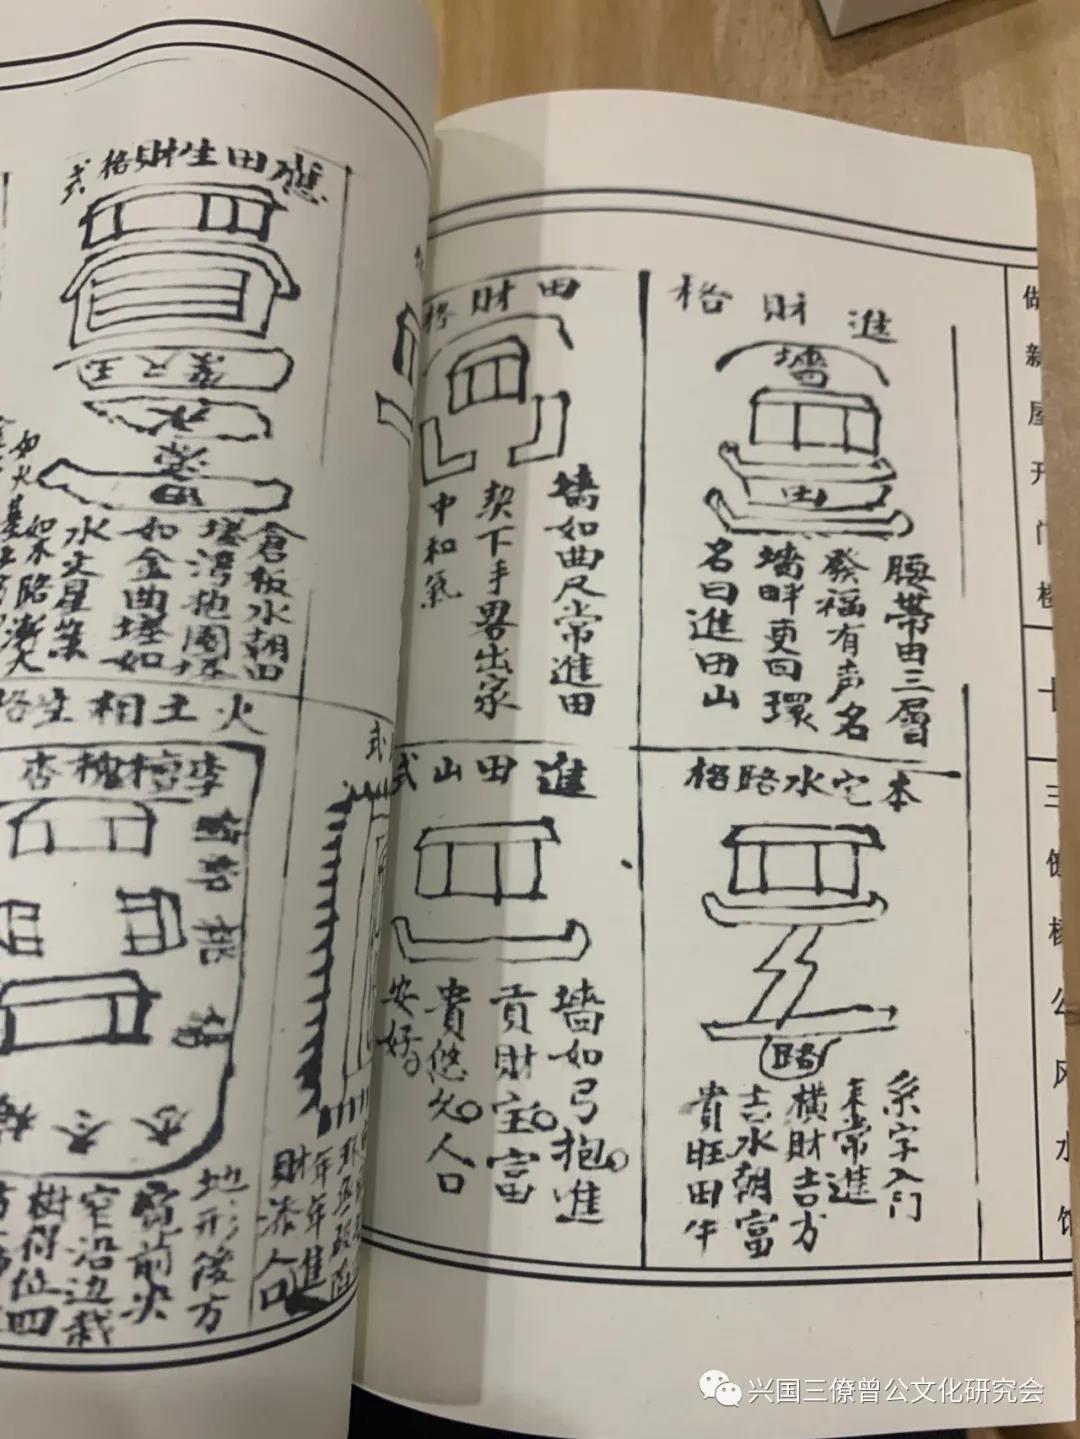 做新屋开门楼
十
三僚杨公风水馆
進財格
墻
田
腰帶田三層
發福有声名
墻畔更回環
名曰進田山
田財格
墻如曲尺常進田
契下手畧出家
中和氣
本宅水路格
路
系字入门
来常進
横財吉方
吉水朝富
貴旺田牛
進田山式
墻如弓抱進
貢財宝富
貴悠久人口
安好
應田生財格式
水
田
倉板水朝田
如金曲堘如
水火星葉
火土相生格
李
槐杏
地形後方
窄前尖
窄沿边栽
樹何位四
年年進
財添人口
兴国三僚曾公文化研究会